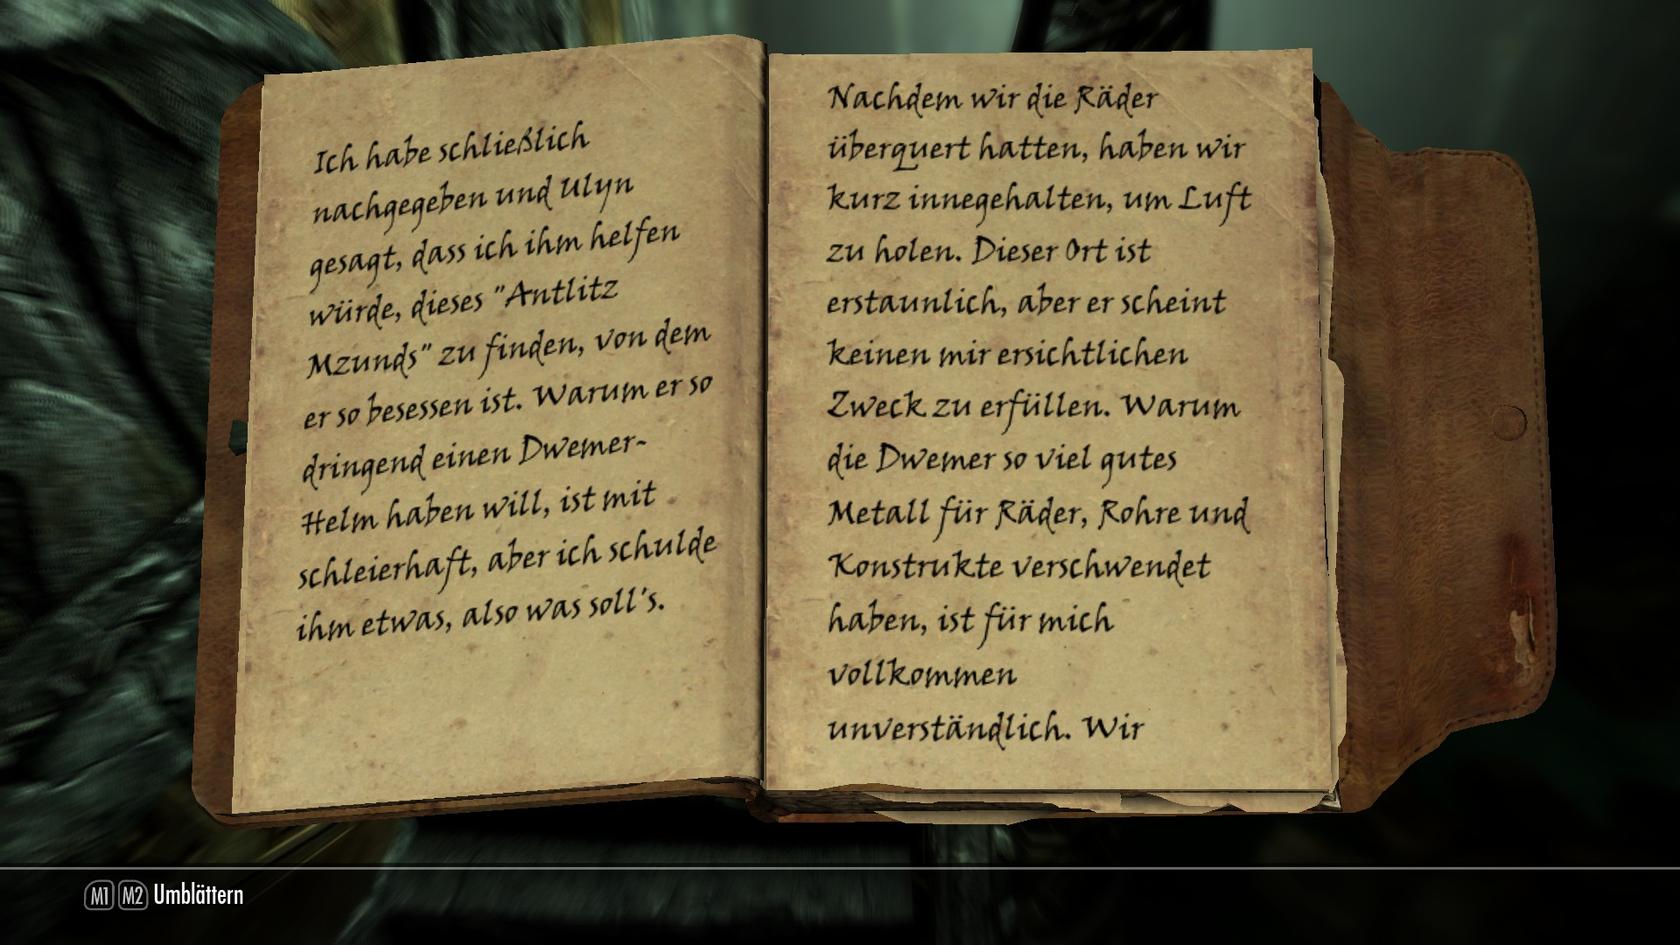 Ich habe schließlich
nachgegeben und Ulyn
gesagt, dass ich ihm helfen
würde, dieses "Antlitz
Mzunds" zu finden, von dem
er so besessen ist. Warum er so
dringend einen Dwemer-
Helm haben will, ist mit
schleierhaft, aber ich schulde
ihm etwas, also was soll's.
Nachdem wir die Räder
überquert hatten, haben wir
kurz innegehalten, um Luft
zu holen. Dieser Ort ist
erstaunlich, aber er scheint
keinen mir ersichtlichen
Zweck zu erfüllen. Warum
die Dwemer so viel gutes
Metall für Räder, Rohre und
Konstrukte verschwendet
haben, ist für mich
vollkommen
unverständlich. Wir
M1 M2 Umblättern